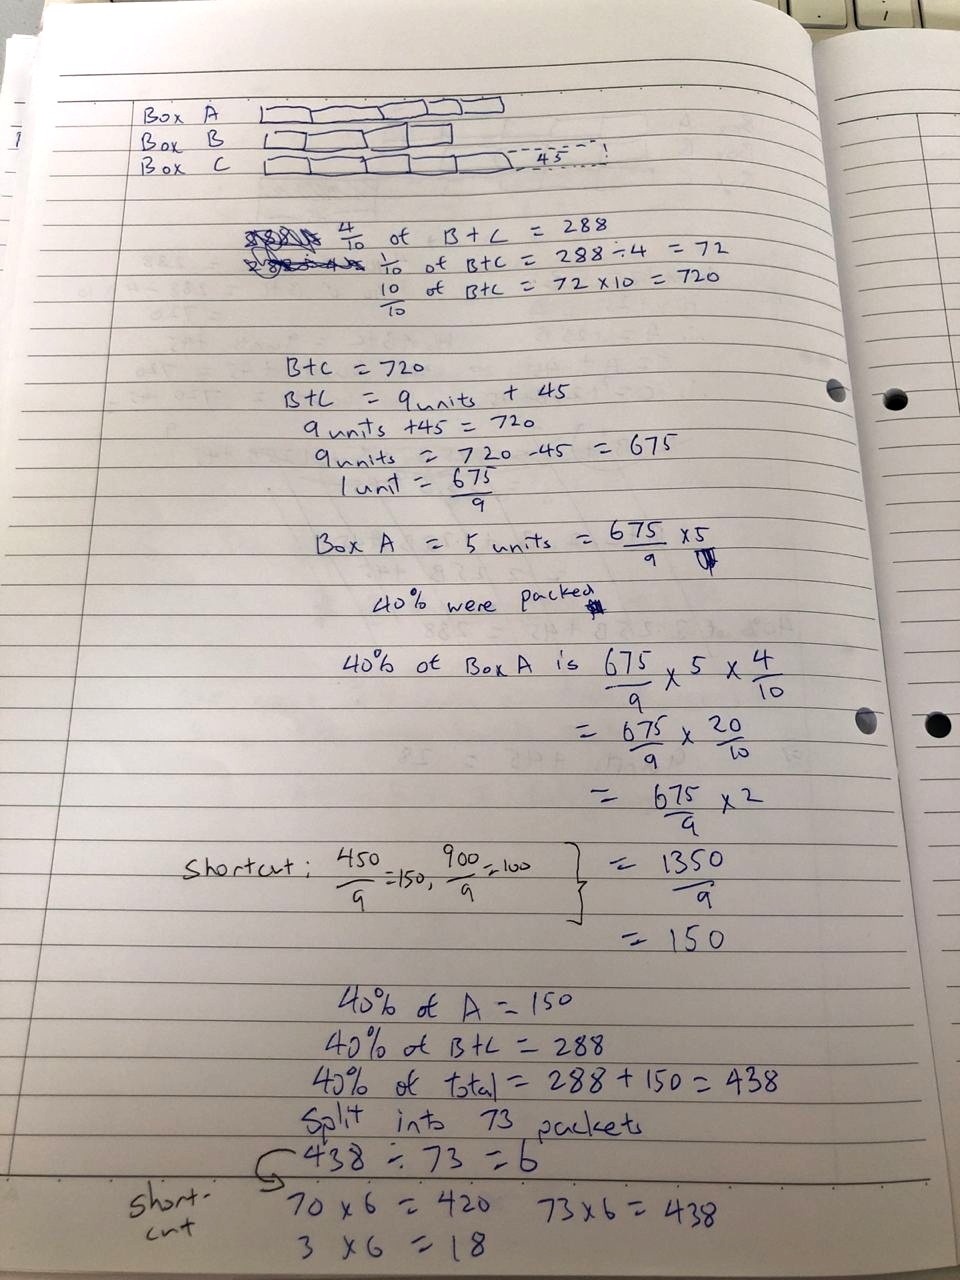 Box A
Box B
Box C 45
4/10 of B+C = 288
1/10 of B+C = 288 ÷ 4 = 72
10/10 of B+C = 72 x 10 = 720
B+C = 720
B+C = 9 units + 45
9 units + 45 = 720
9 units = 720 - 45 = 675
1 unit = 675/9
Box A = 5 units = 675/9 x 5
40% were packed
40% of Box A is 675/9 x 5 x 4/10
= 675/9 x 20/10
= 675/9 x 2
Shortcut: 450/9 = 150, 900/9 = 100 } = 1350/9
= 150
40% of A = 150
40% of B+C = 288
40% of total = 288 + 150 = 438
Split into 73 packets
438 ÷ 73 = 6
Short-
cut
70 x 6 = 420 73 x 6 = 438
3 x 6 = 18